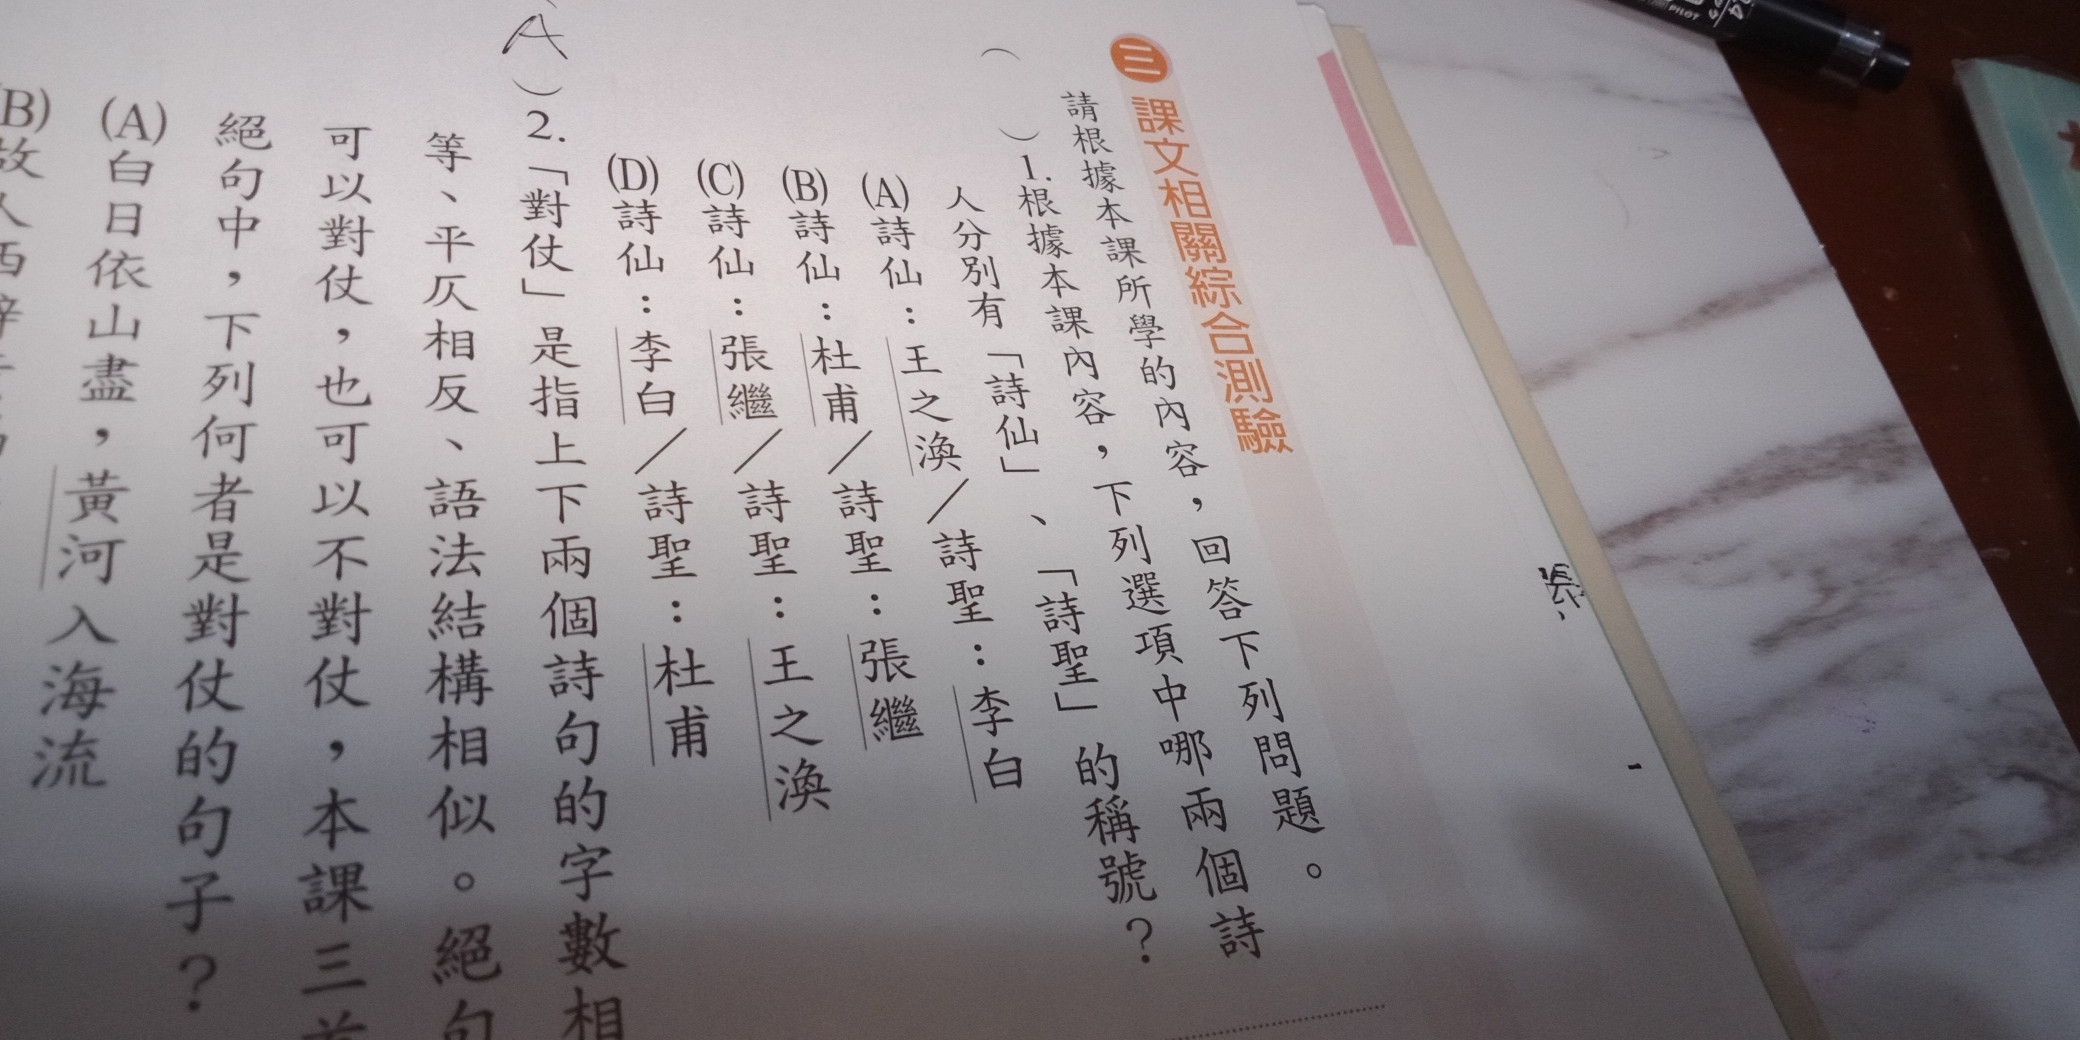 三 課文相關綜合測驗
請根據本課所學的內容，回答下列問題。
（ ）1.根據本課內容，下列選項中哪兩個詩
人分別有「詩仙」、「詩聖」的稱號？
(A)詩仙：王之渙／詩聖：李白
(B)詩仙：杜甫／詩聖：張繼
(C)詩仙：張繼／詩聖：王之渙
(D)詩仙：李白／詩聖：杜甫
A）2.「對仗」是指上下兩個詩句的字數相
等、平仄相反、語法結構相似。絕句
可以對仗，也可以不對仗，本課三首
絕句中，下列何者是對仗的句子？
(A)白日依山盡，黃河入海流
(B)故人西辭
PILOT